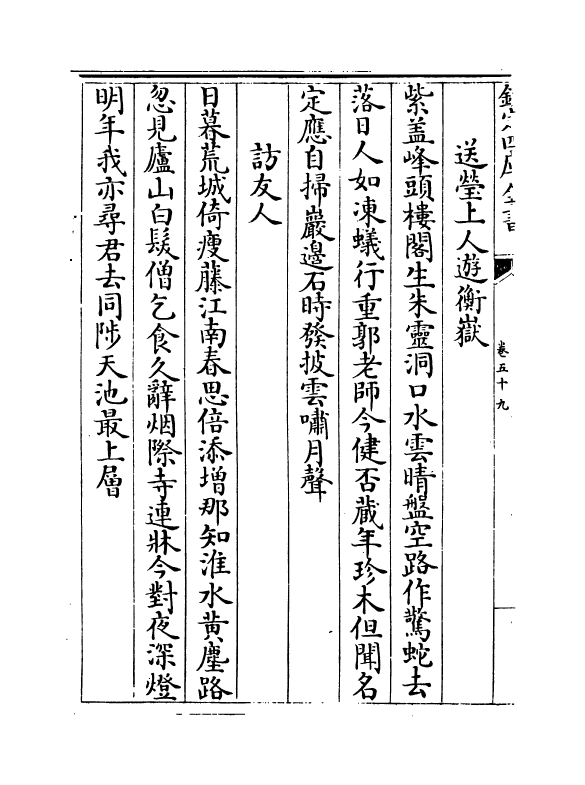 欽定四庫全書
卷五十九
送瑩上人遊衡嶽
紫盖峰頭樓閣生朱靈洞口水雲晴盤空路作驚蛇去
落日人如凍蟻行重郭老師今健否藏年珍木但聞名
定應自掃巖邊石時發披雲嘯月聲
訪友人
日暮荒城倚瘦藤江南春思倍添增那知淮水黄塵路
忽見廬山白髮僧乞食久辭烟際寺連牀今對夜深燈
明年我亦尋君去同陟天池最上層